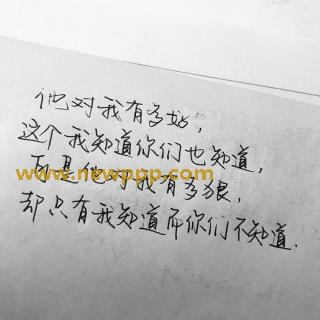 他对我有多好，
这个我知道你们也知道，
可是他对我有多狠，
www.newppp.com
却只有我知道而你们不知道.